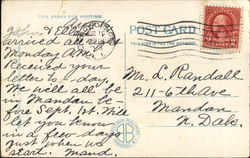 THIS SPACE FOR WRITING
POST CARD
THIS SIDE IS FOR THE ADDRESS
John & Ella
arrived all right
Monday A.M.
Received your
letter to-day.
We will all be
in Mandan be-
fore Sept. 1st. Will
let you know
in a few days
just when we
start. Maud.
Mr. L. Randall
211-6th Ave
Mandan
N. Dak.